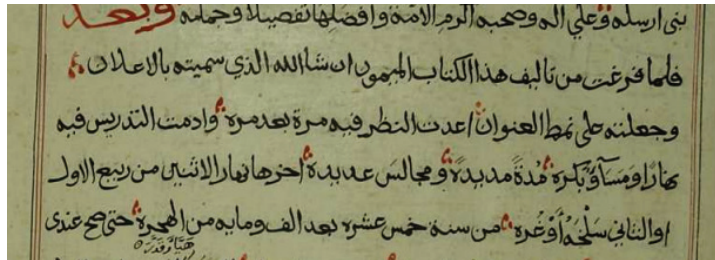 نبى ارسله وعلي اله وصحبه اكرم الامة وافضلها تفصيلا وجملة وبعد
فلما فرغت من تاليف هذا الكتاب الميمون ان شا الله الذي سميته بالاعلان
وجعلته على نمط العنوان اعدت النظر فيه مرة بعد مرة وادمت التدريس فيه
نهارًا ومسآءً وبكرة مُدةً مديدةً ومجالسَ عديدة اخرها نهار الاثنين من ربيع الاول
او الثاني سَلْخَهُ أَوْغُرة من سنة خمس عشره بعد الف ومايه من الهجرة حتى صح عندي